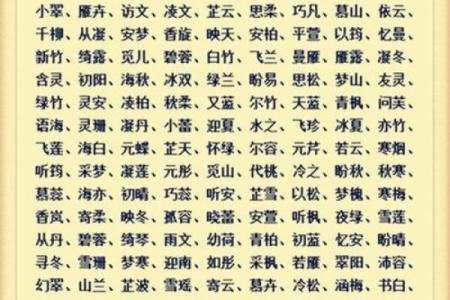 小翠、雁卉、访文、凌文、芷云、思柔、巧凡、慕山、依云、
千柳、从凝、安梦、香旋、映天、安柏、平萱、以筠、忆曼、
新竹、绮露、觅儿、碧蓉、白竹、飞兰、曼雁、雁露、凝冬、
含灵、初阳、海秋、冰双、绿兰、盼易、思松、梦山、友灵、
绿竹、灵安、凌柏、秋柔、又蓝、尔竹、天蓝、青枫、问芙、
语海、灵珊、凝丹、小蕾、迎夏、水之、飞珍、冰夏、亦竹、
飞莲、海白、元蝶、芷天、怀绿、尔容、元芹、若云、寒烟、
听筠、采梦、凝莲、元彤、觅山、代桃、冷之、盼秋、秋寒、
慕蕊、海亦、初晴、巧蕊、听安、芷雪、以松、梦槐、寒梅、
香岚、寄柔、映冬、孤容、晓蕾、安萱、听枫、夜绿、雪莲、
从丹、碧蓉、绮琴、雨文、幼荷、青柏、初蓝、忆安、盼晴、
寻冬、雪珊、梦寒、迎南、如彤、采枫、若雁、翠阳、沛容、
幻翠、山兰、芷波、雪瑶、寄云、慕卉、冷松、涵梅、书白、